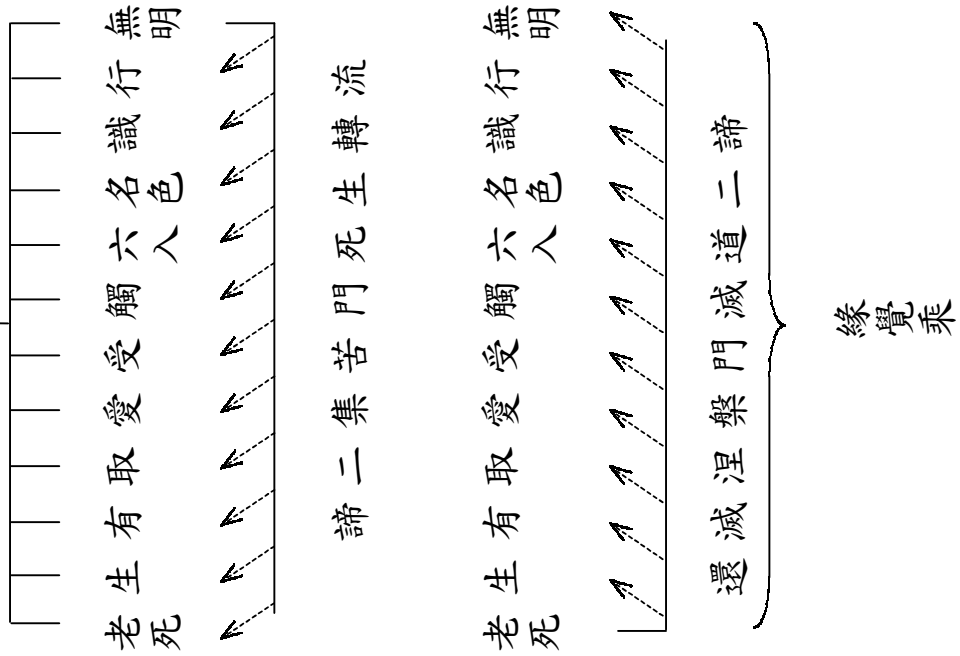 無明
行
識
名色
六入
觸
受
愛
取
有
生
老死
流轉生死門苦集二諦
無明
行
識
名色
六入
觸
受
愛
取
有
生
老死
還滅涅槃門滅道二諦
緣覺乘